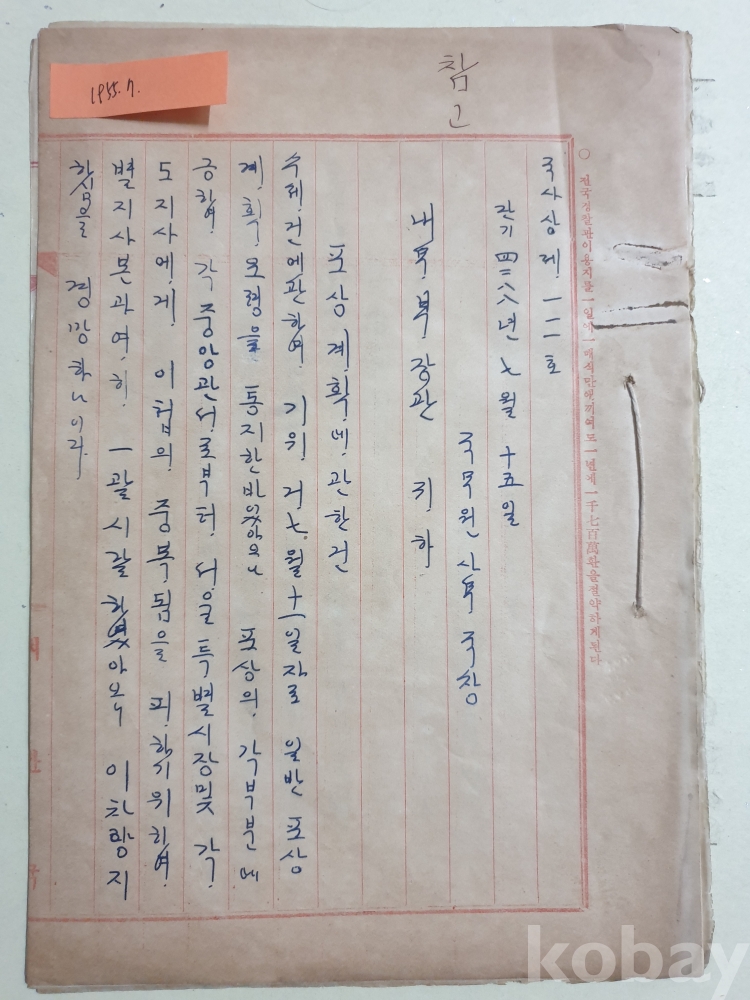 참고
1955.7.
○ 전국경찰관이용지를一일에一매식만애끼여도一년에一千七百萬환을절약하게된다
국사상 제 一一二호
단기 四二八八년 七월 十五일
국무원 사무국장
내무부 장관 귀하
포상 계획에 관한 건
수제 건에관하여 기위 거七월十一일자로 일반 포상
계획 요령을 통지한바있아오나 포상의 각부분에
긍하여 각 중앙관서로부터 서울특별시장및 각
도지사에게 이첩의 중복됨을 피하기위하여
별지사본과여히 一괄시달하였아오니 이차량지
하심을 경망하나이다
kobay